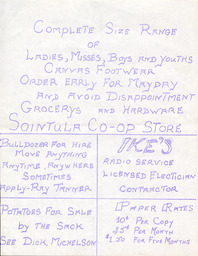 Complete Size Range
of
Ladies, Misses, Boys and Youths
Canvas Footwear
Order Early For Mayday
and Avoid Disappointment
Grocerys and Hardware
Sointula Co-op Store
Bulldozer For Hire
Move Anything
Anytime, Anywhere
Sometimes
Apply - Ray Tanner
Potatoes For Sale
by the Sack
See Dick Michelson
IKE'S
Radio Service
Licensed Electician
Contractor
Paper Rates
10¢ Per Copy
35¢ Per Month
$1.50 Per Five Months